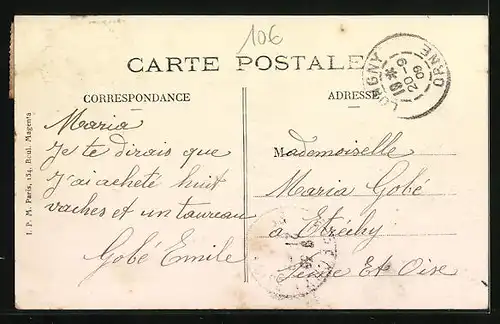 106
CARTE POSTALE
CORRESPONDANCE
Maria
Je te dirais que
J'ai acheté huit
vaches et un taureau
Gobé Emile
ADRESSE
Mademoiselle
Maria Gobé
a Etréchy
Seine Et Oise
LONGNY
19 *
20-9
09
ORNE
I. P. M. Paris, 134, Boul. Magenta